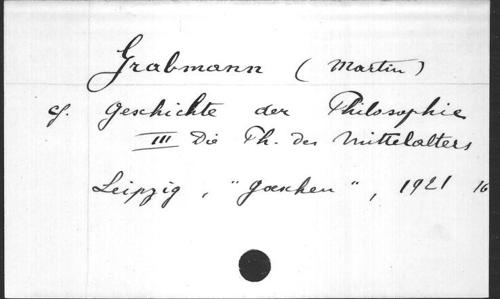 Grabmann (Martin)
cf. Geschichte der Philosophie
III Die Ph. des Mittelalters
Leipzig, "Goeschen", 1921 16